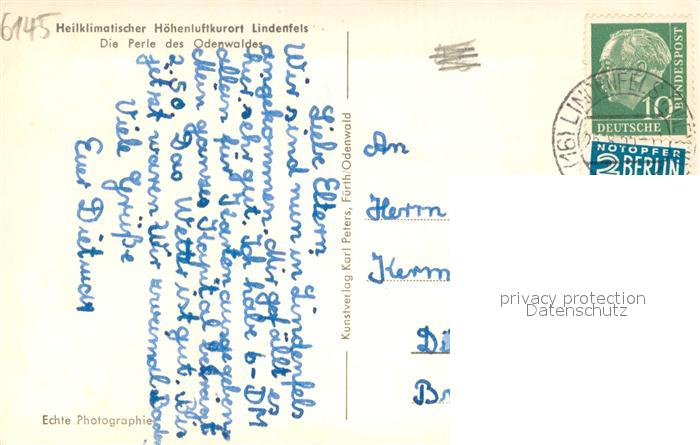 6145
Heilklimatischer Höhenluftkurort Lindenfels
Die Perle des Odenwaldes
Liebe Eltern!
Wir sind nun in Lindenfels
angekommen. Mir gefällt es
hier sehr gut. Ich habe 6-DM
allein für Karten ausgegeben.
Mein ganzes Kapital beträgt
2.50. Das Wetter ist gut. Bis
jetzt waren Wir zweimal Baden
Viele Grüße
Euer Dietmar
Echte Photographie
Kunstverlag Karl Peters, Fürth/Odenwald
An
Herrn
Kerm
D
Br
10
DEUTSCHE
BUNDESPOST
NOTOPFER
2 BERLIN
(16) LINDENFELS
privacy protection
Datenschutz